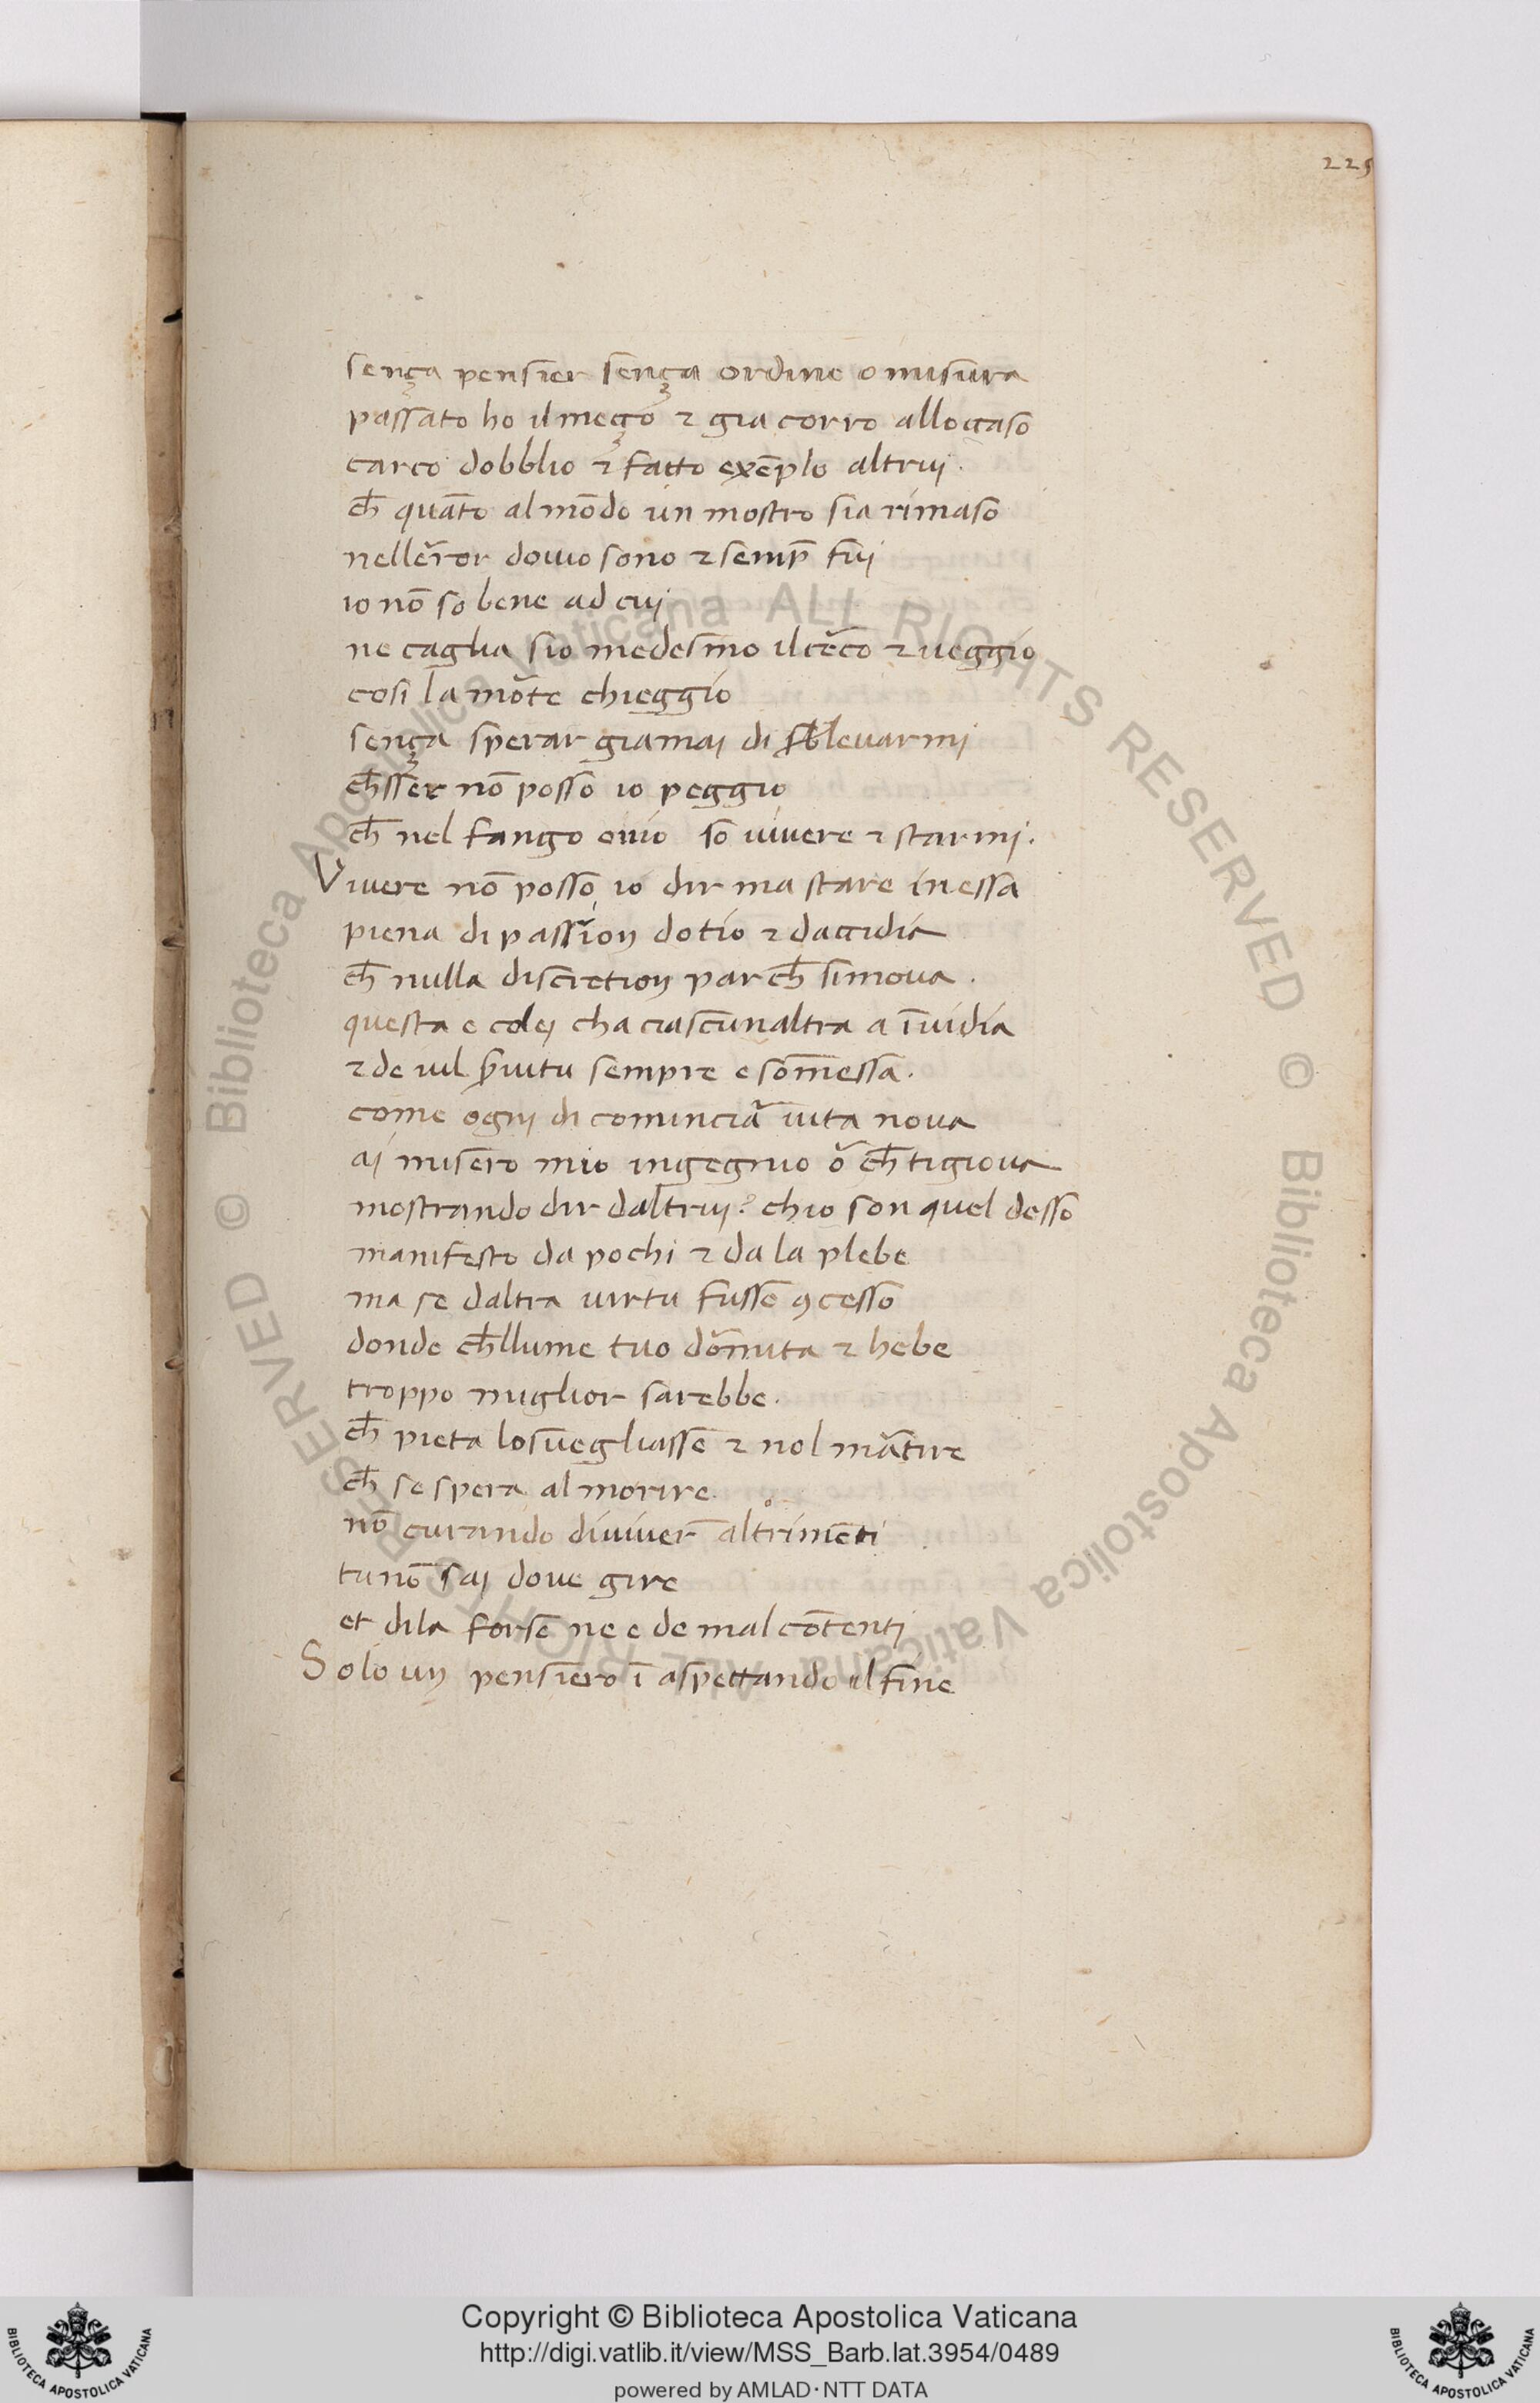 225
sença pensier sença ordine o misura
passato ho il meço ⁊ gia corro alloccaso
carco dobblio ⁊ fatto exēplo altruj.
ch̄ quāto al mōdo un mostro sia rimaso
nellēror dowio sono ⁊ semp̄ fuj
io nō so bene ad cuj
ne caglia sio medesmo il cēco ⁊ ueggio
cosi la mōte chieggio
sença sperar giamaj di leuarmj
ch̄sser nō posso io peggio
ch̄ nel fango ouio so uiuere ⁊ starmj.
Viuere nō posso io dir ma stare in essa
piena di passion dotio ⁊ daccidia
ch̄ nulla discretion par ch̄ simoua.
questa e colej cha ciascunaltra a īuidia
⁊ de uil s̄uitu sempre e som̄essa.
come ognj di comincia uita noua
aj misero mio ingegnio o ch̄ tigioua
mostrando dir daltruj? chio son quel desso
manifesto da pochi ⁊ da la plebe
ma se daltra uirtu fusse ꝯcesso
donde ch̄llume tuo dōmita ⁊ hebe
troppo miglior sarebbe.
ch̄ pieta lo suegliasse ⁊ nol mātire
ch̄ se spera al morire.
nō curando diuiuer altrimēti
tu nō saj doue gire
et dila forse ne e de mal cōtentj
Solo un pensiero ī aspettando il fine
© Biblioteca Apostolica Vaticana ALL RIGHTS RESERVED © Biblioteca Apostolica Vaticana ALL RIGHTS RESERVED
Copyright © Biblioteca Apostolica Vaticana
http://digi.vatlib.it/view/MSS_Barb.lat.3954/0489
powered by AMLAD·NTT DATA
BIBLIOTECA APOSTOLICA VATICANA
BIBLIOTECA APOSTOLICA VATICANA